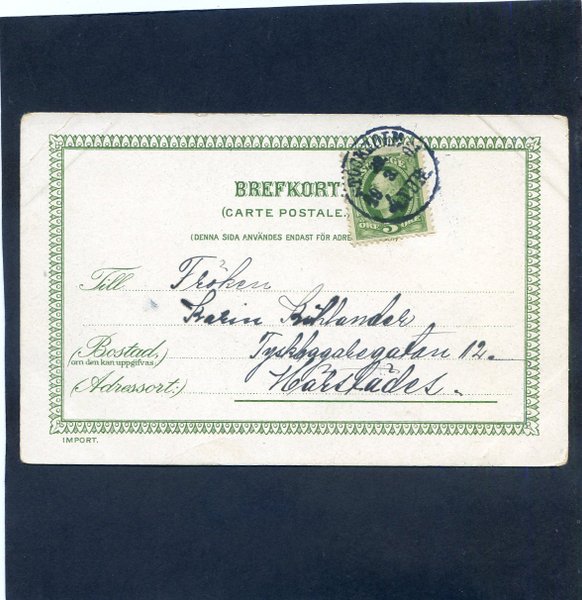 BREFKORT
(CARTE POSTALE.)
(DENNA SIDA ANVÄNDES ENDAST FÖR ADRE
STOCKHOLM
5
ÖRE ÖRE
Till Fröken
Karin
(Bostad, Tyskbagaregatan 12.
om den kan uppgifvas)
(Adressort:) Härstädes.
IMPORT.